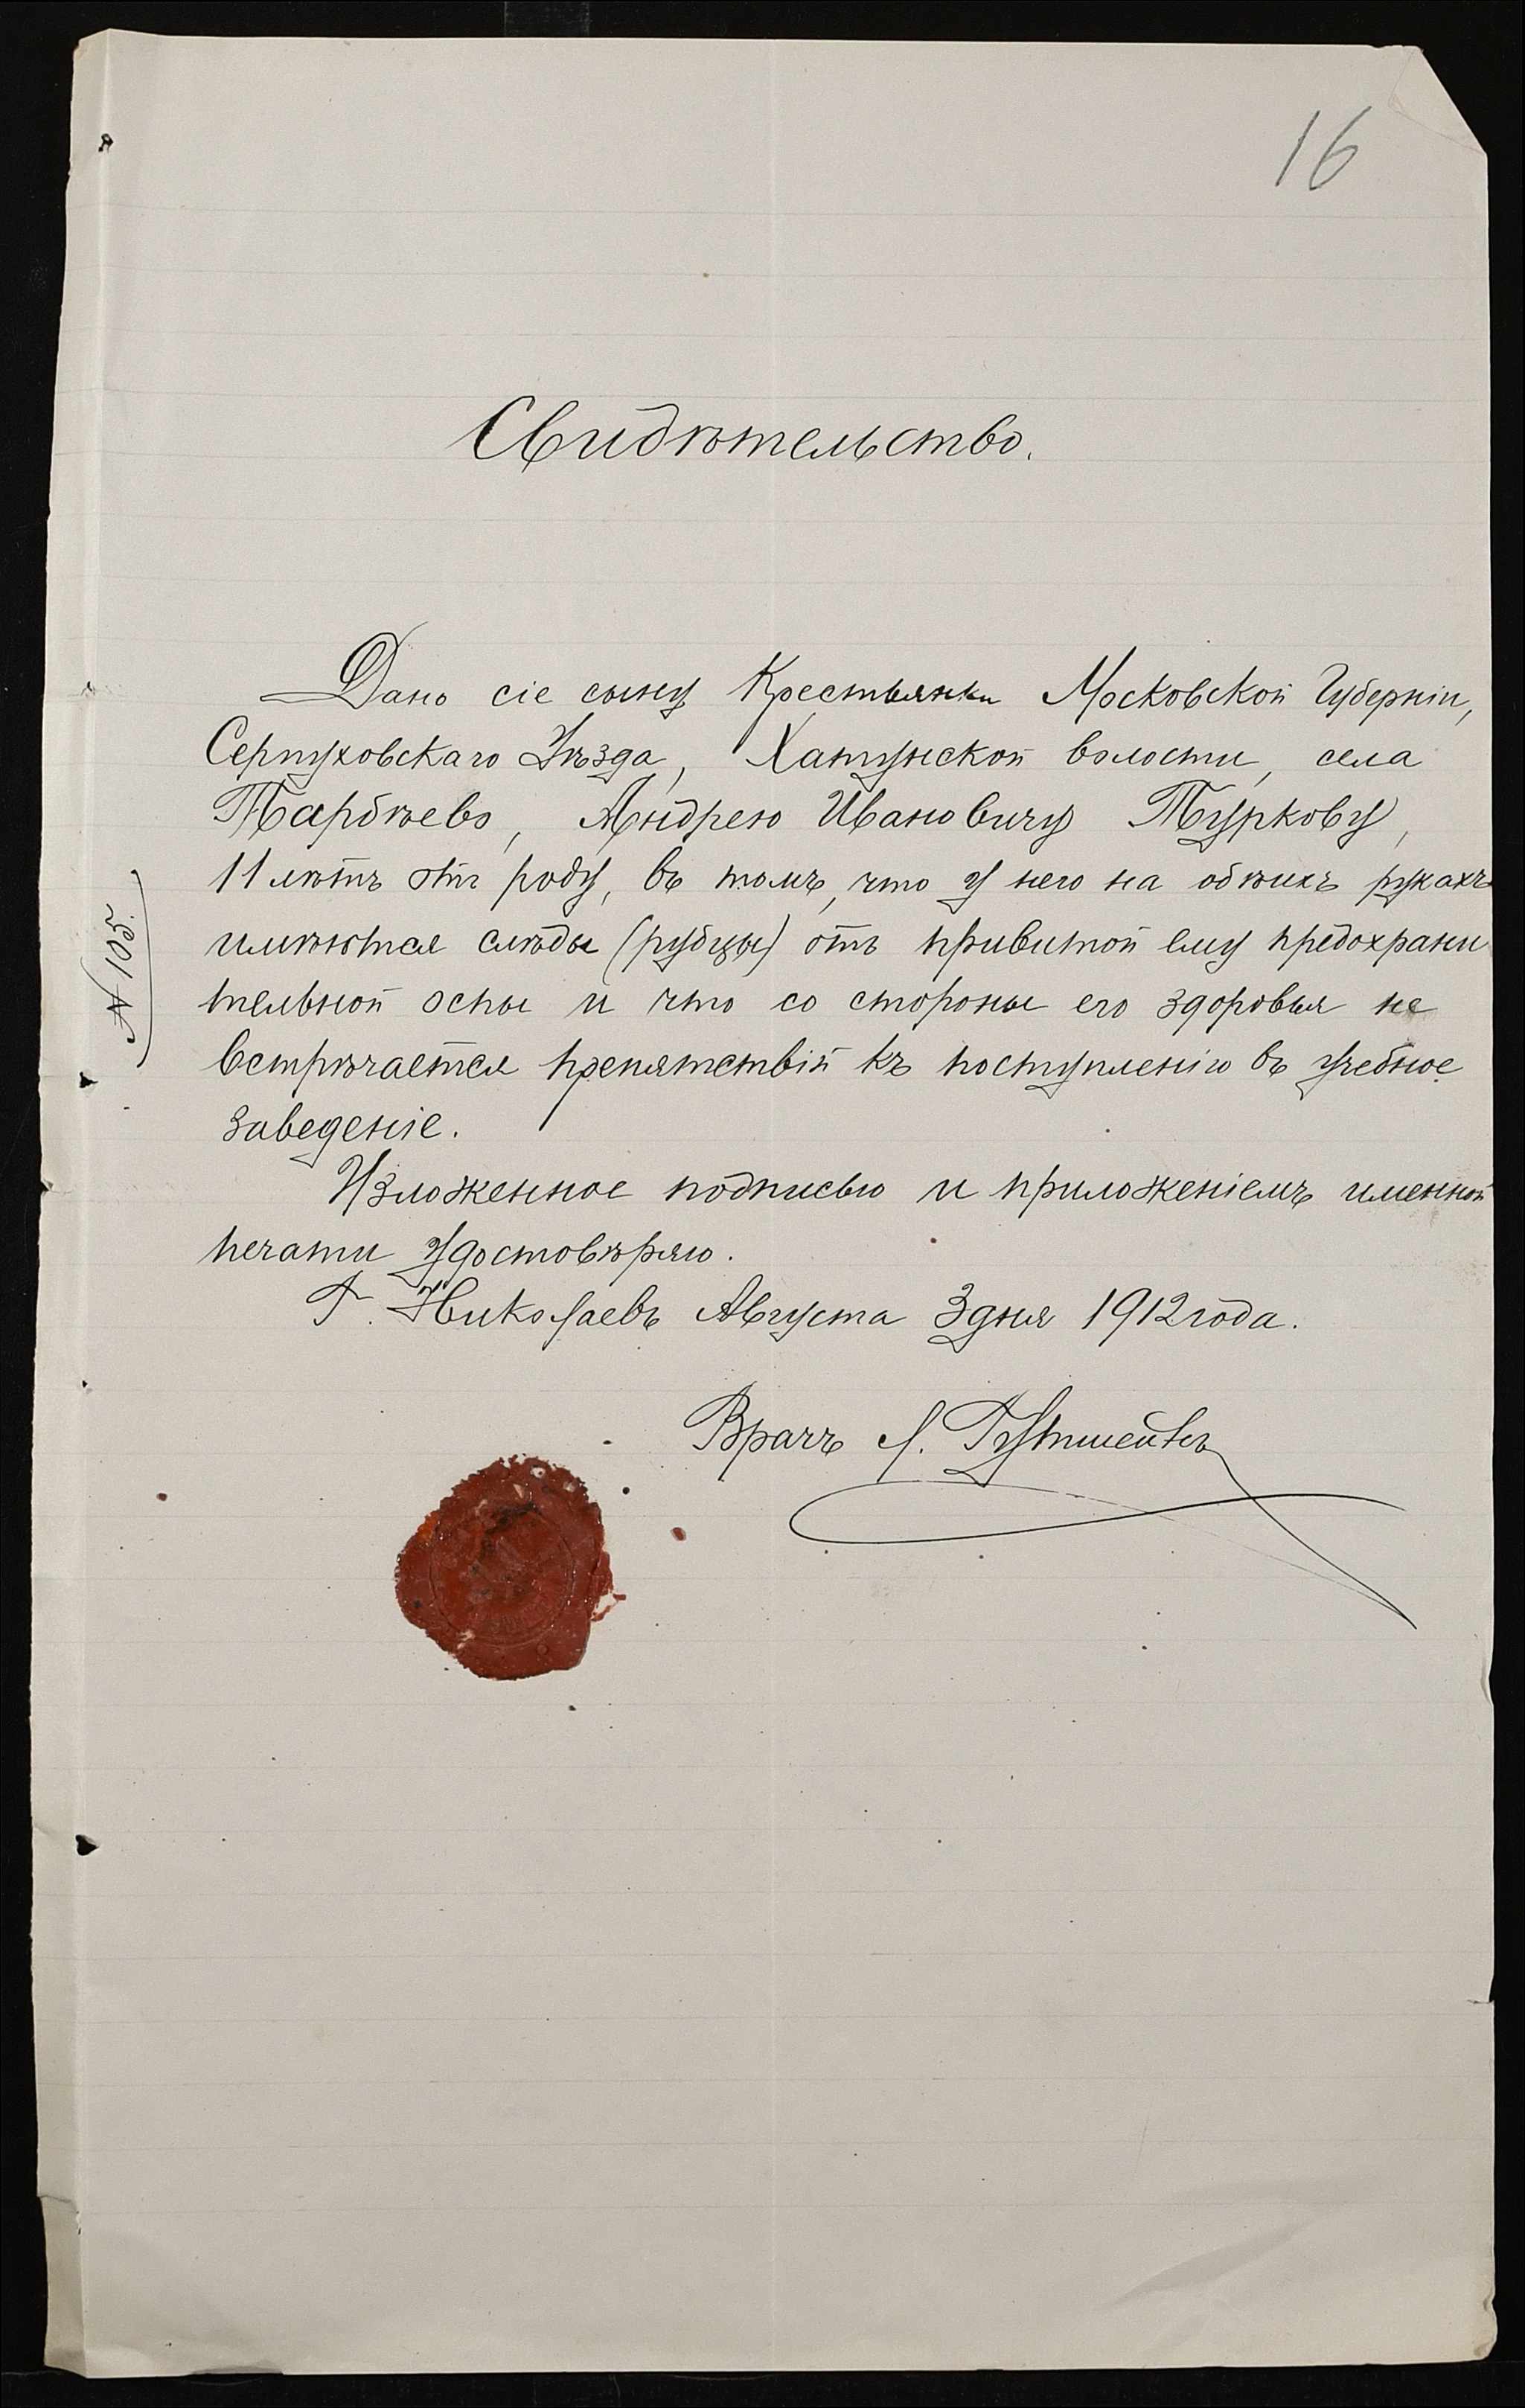 16
Свидѣтельство.
Дано сіе сыну Крестьянки Московской Губерніи,
Серпуховскаго Уѣзда, Хатунской волости, села
Тарбѣево, Андрею Ивановичу Туркову,
11 лѣтъ отъ роду, въ томъ, что у него на обѣихъ рукахъ
имѣются слѣды (рубцы) отъ привитой ему предохрани
тельной оспы и что со стороны его здоровья не
встрѣчается препятствій къ поступленію въ учебное
заведеніе.
Изложенное подписью и приложеніемъ именной
печати удостовѣряю.
Г. Николаевъ Августа 3 дня 1912 года.
Врачъ Л. Гутштейнъ
N 105.